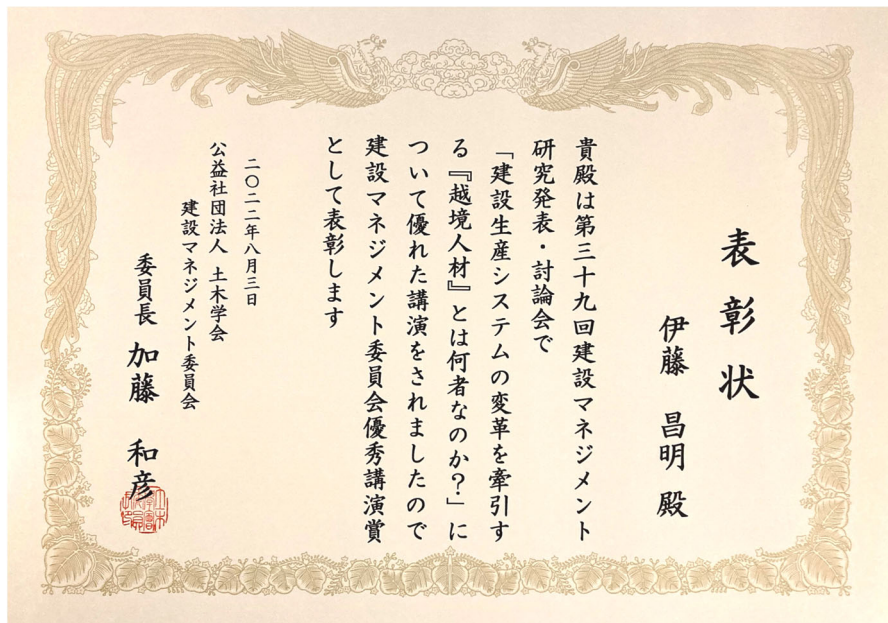 表彰状
伊藤 昌明 殿
貴殿は第三十九回建設マネジメント
研究発表・討論会で
「建設生産システムの変革を牽引す
る『越境人材』とは何者なのか？」に
ついて優れた講演をされましたので
建設マネジメント委員会優秀講演賞
として表彰します
二〇二二年八月三日
公益社団法人 土木学会
建設マネジメント委員会
委員長 加藤 和彦